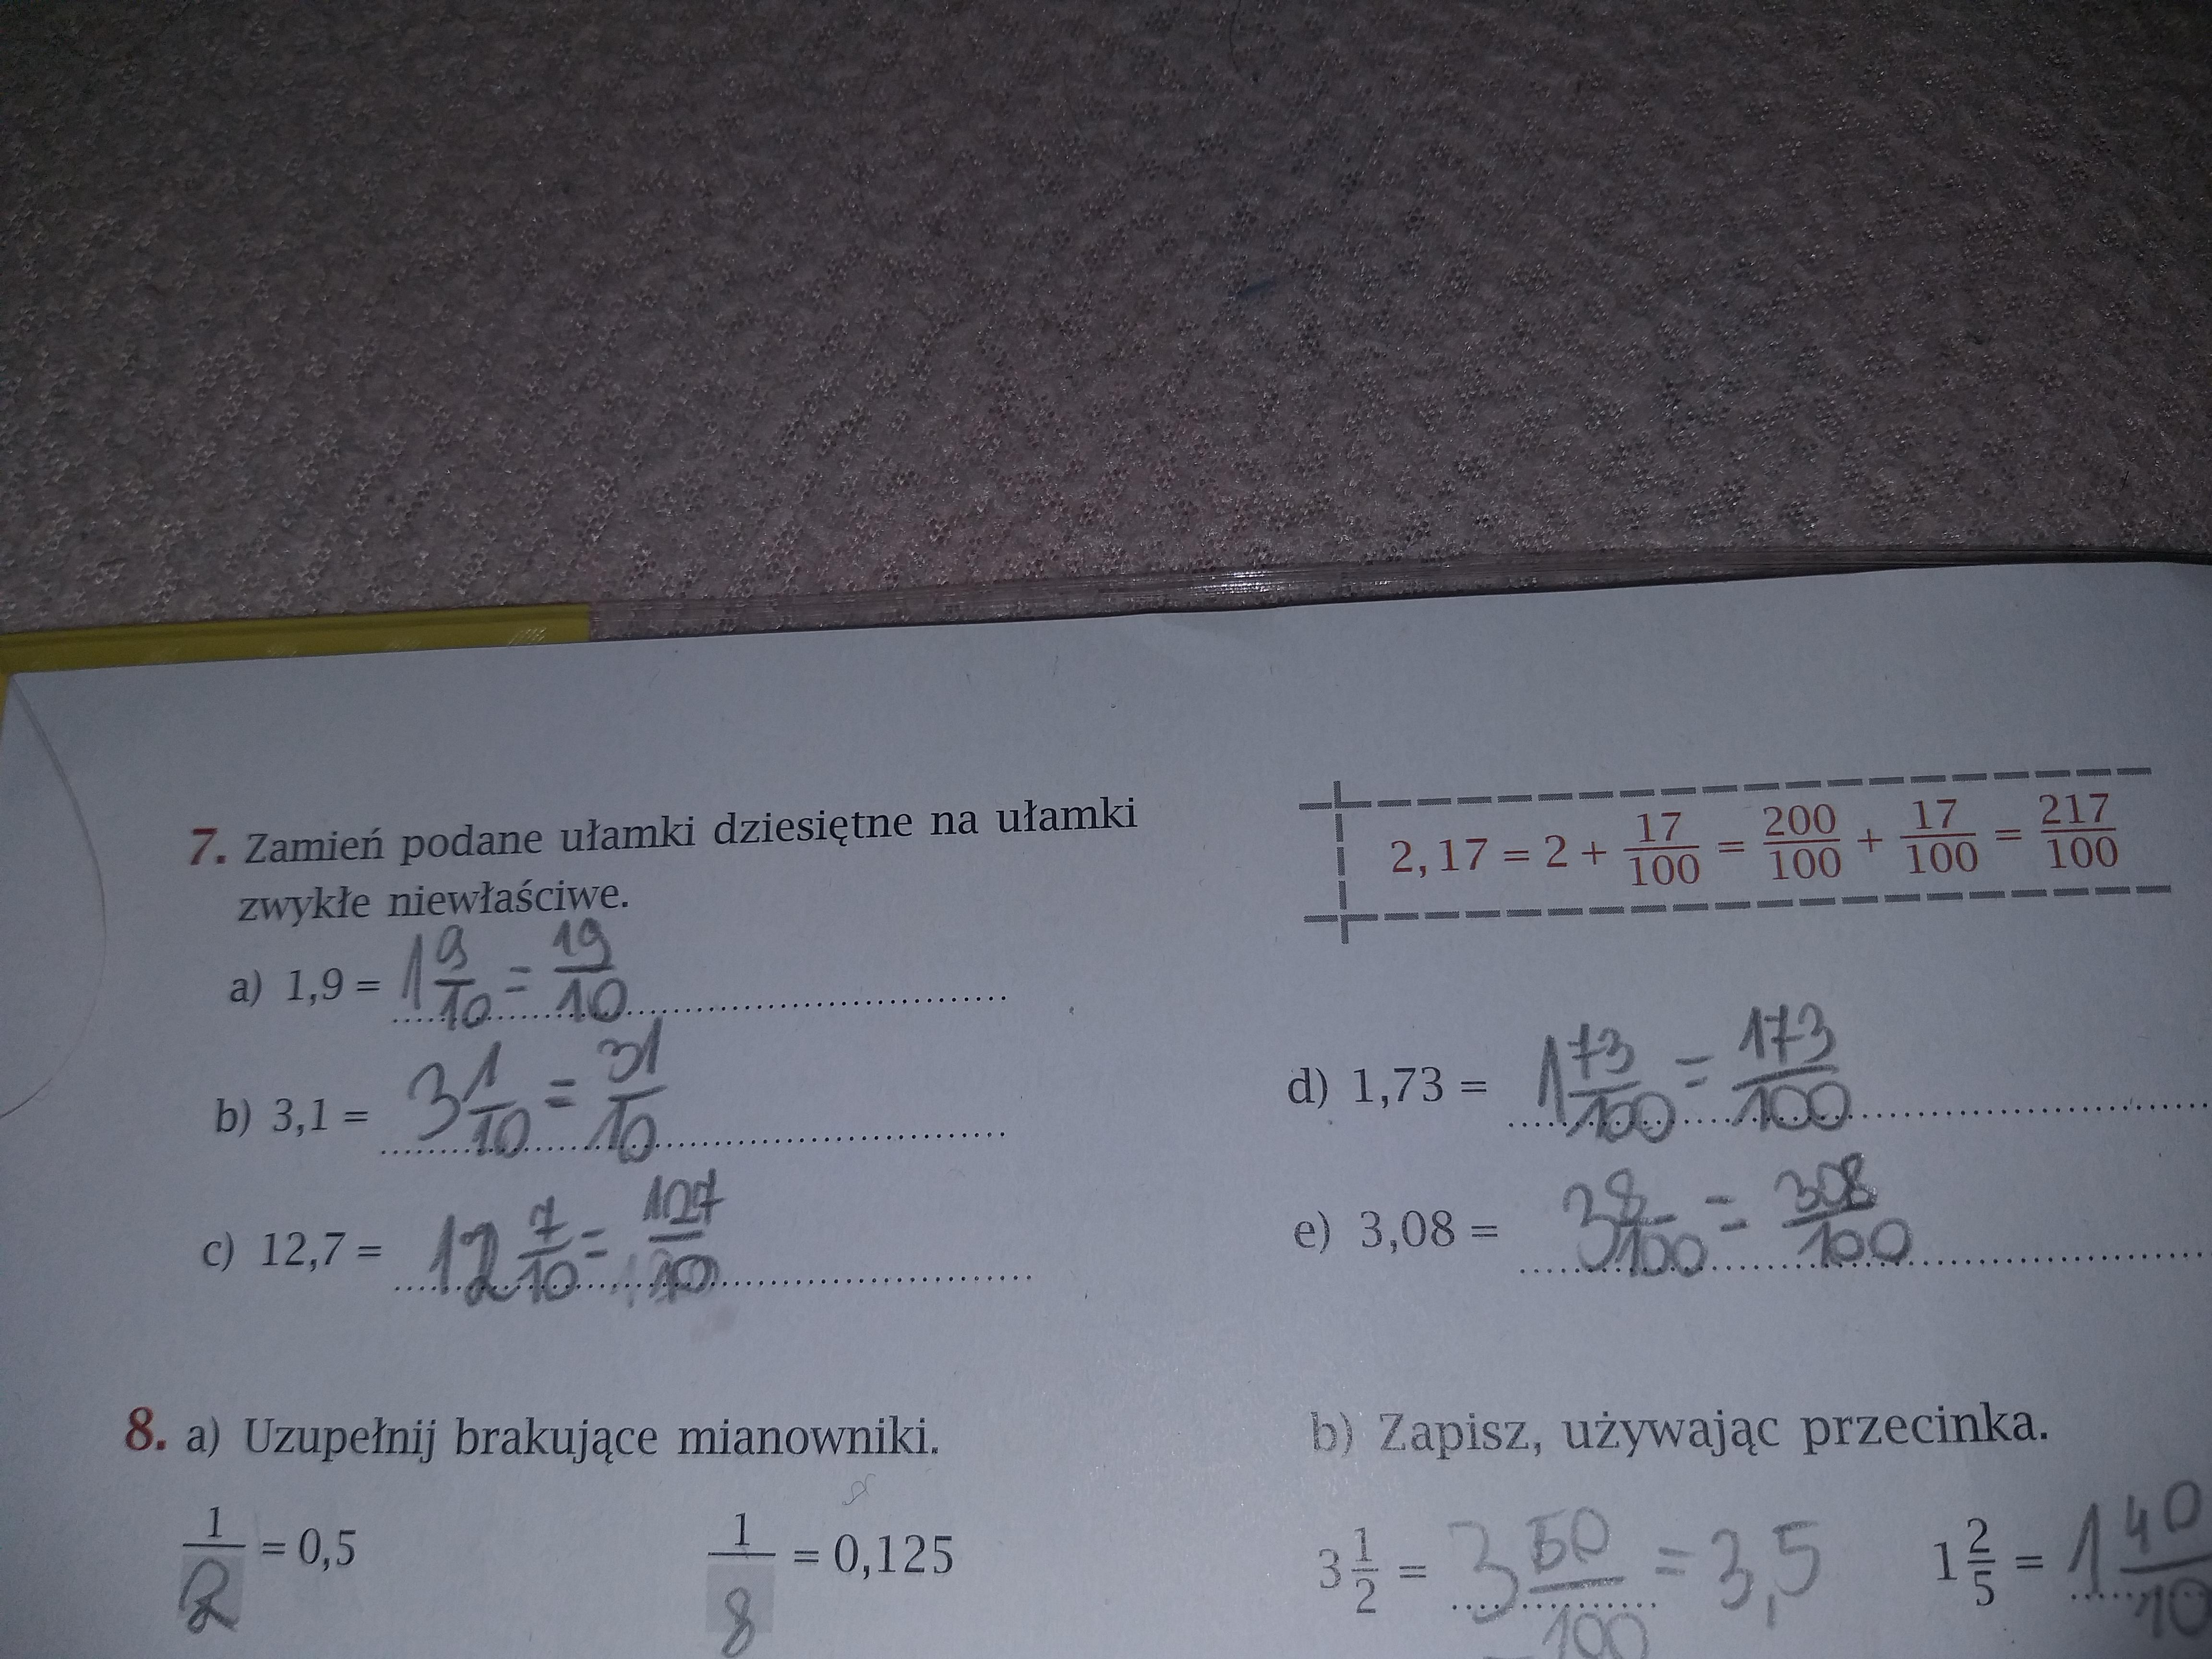 7. Zamień podane ułamki dziesiętne na ułamki
zwykłe niewłaściwe.
2,17 = 2 + 17/100 = 200/100 + 17/100 = 217/100
a) 1,9 = 1 9/10 = 19/10
b) 3,1 = 3 1/10 = 31/10
c) 12,7 = 12 7/10 = 127/10
d) 1,73 = 1 73/100 = 173/100
e) 3,08 = 3 8/100 = 308/100
8. a) Uzupełnij brakujące mianowniki.
1/2 = 0,5
1/8 = 0,125
b) Zapisz, używając przecinka.
3 1/2 = 3 50/100 = 3,5
1 2/5 = 1 40/10